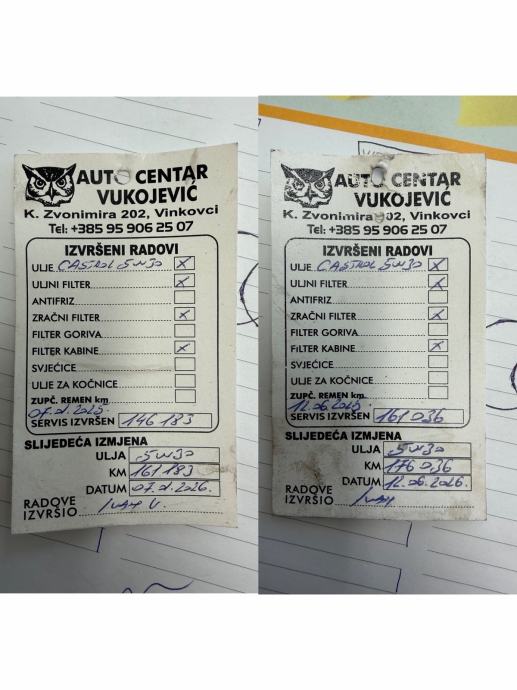 AUTO CENTAR
VUKOJEVIĆ
K. Zvonimira 202, Vinkovci
Tel: +385 95 906 25 07
IZVRŠENI RADOVI
ULJE CASTROL 5W30 X
ULJNI FILTER X
ANTIFRIZ
ZRAČNI FILTER X
FILTER GORIVA
FILTER KABINE X
SVJEĆICE
ULJE ZA KOČNICE
ZUPČ. REMEN km
SERVIS IZVRŠEN 146 183
SLIJEDEĆA IZMJENA
ULJA 5W30
KM 161 183
DATUM 07.01.2026.
RADOVE
IZVRŠIO Ivan V.
AUTO CENTAR
VUKOJEVIĆ
K. Zvonimira 202, Vinkovci
Tel: +385 95 906 25 07
IZVRŠENI RADOVI
ULJE CASTROL 5W30 X
ULJNI FILTER X
ANTIFRIZ
ZRAČNI FILTER X
FILTER GORIVA
FILTER KABINE X
SVJEĆICE
ULJE ZA KOČNICE
ZUPČ. REMEN km
12.06.2025
SERVIS IZVRŠEN 161 036
SLIJEDEĆA IZMJENA
ULJA 5W30
KM 176 036
DATUM 12.06.2026.
RADOVE
IZVRŠIO Ivan